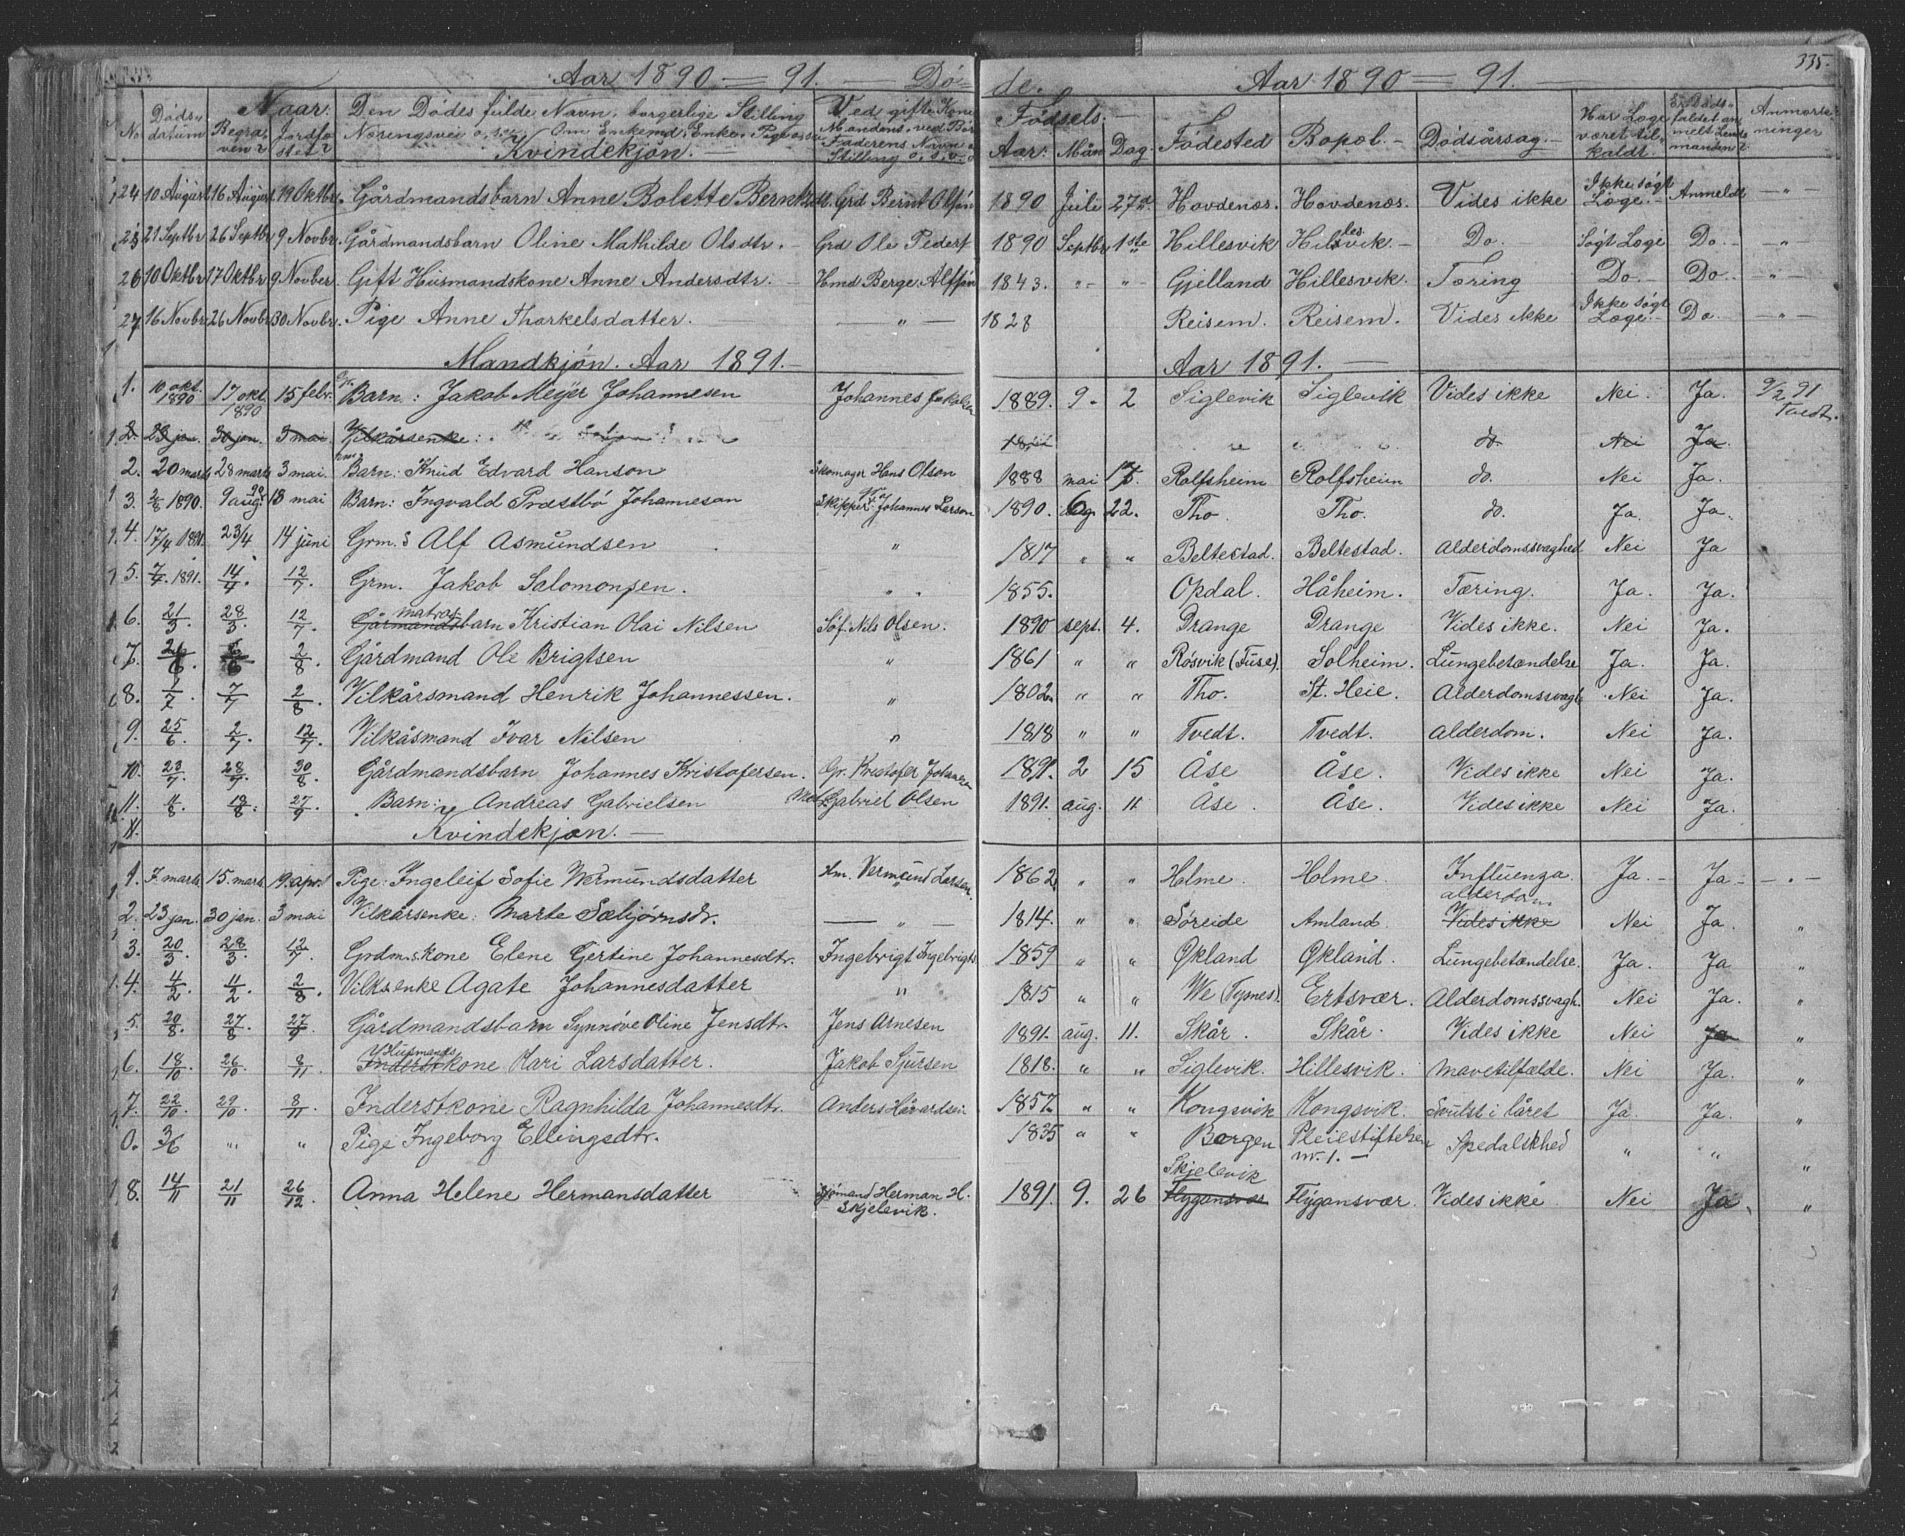 335.
Aar 1890 = 91. — Dö- de. Aar 1890 = 91.
No. Döds- datum Naar Begra- ven? Jordfæ- stet? Den Dödes fulde Navn, borgerlige Stilling Næringsvei o.s.v. Om Enkemd, Enke, Pige Ved gifte Koner Mandens, ved Börn Faderens Navn Stilling o.s.v. Födsels- Aar. Mån Dag. Födested Bopæl. Dödsårsag. Har Læge været til- kaldt. Er Döds- faldet an- meldt Lens- manden? Anmærk- ninger
Kvindekjön.
24 10 August 16 August 19 Oktbr. Gårdmandsbarn Anne Bolette Berntsdtr. Grd Bernt Olsön 1890 Juli 27d. Hovdenæs. Hovdenæs. Vides ikke Ikke søgt Læge. Anmeldt — " —
25 21 Septbr 26 Septbr 9 Novbr. Gårdmandsbarn Oline Mathilde Olsdtr. Grd Ole Peders. 1890 Septbr 1ste Hillesvik Hillesvik Do. Søgt Læge Do. "
26 10 Oktbr 17 Oktbr 9 Novber. Gift Husmandskone Anne Andersdtr. Hmd Berge Alfsön 1843. " " Gjelland Hillesvik. Tæring Do Do " —
27. 16 Novbr 26 Novbr 30 Novbr. Pige Anne Tharkelsdatter. — " — 1828 Reisem. Reisem. Vides ikke Ikke søgt Læge. Do. — " —
Mandkjön. Aar 1891. — Aar 1891. —
1. 10 okt. 1890 17 okt. 1890 15 febr. Barn: Jakob Meyer Johannesen Johannes Jakobsen 1889. 9. 2 Siglevik Siglevik Vides ikke Nei. Ja. 9/2 91 Tvedt.
2. 23 jan. 30 jan. 3 mai. Vilkårsenke: do. Nei Ja
2. 20 marts 28 marts 3 mai. Barn: Knud Edvard Hanson Skomager Hans Olson 1888 mai 17. Rolfsheim Rolfsheim do. Nei Ja.
3. 2/8 1890. 9 aug. 90 18 mai Barn: Ingvald Præstbö Johanneson Skipper Johannes Larson 1890. 6 22. Tho. Tho. do. Ja. Ja.
4. 17/4 1891. 23/4 14 juni Grm. Alf Asmundsen " 1817 " " Beltestad. Beltestad. Alderdomssvaghed Nei Ja
5. 7/4 1891. 14/4. 12/7. Grm. Jakob Salomonsen. " 1855. Opdal. Håheim. Tæring. Ja. Ja.
6. 21/3 28/3. 12/7. Gårmands matros barn Kristian Olai Nilsen Söf. Nils Olsen. 1890 sept. 4. Drange Drange Vides ikke. Nei Ja.
7. 2/8 Gårdmand Ole Brigtsen " 1861 " " Røsvik (Fuse). Solheim. Lungebetændelse Ja. Ja.
8. 1/7. 7/7 2/8 Vilkårsmand Henrik Johannessen. " 1802. " " Tho. St. Heie. Alderdomssvagh. Nei Ja.
9. 25/6. 2/7. 12/7. Vilkåsmand Ivar Nilsen " 1818 " " Tvedt. Tvedt. Alderdom. Nei Ja.
10. 23/7. 28/7. 30/8 Gårdmandsbarn Johannes Kristofersen. Gr. Kristofer Johannesen 1891. 2 15 Åse Åse. Vides ikke Nei Ja.
11. 11/8. 18/8. 27/9 Barn: Andreas Gabrielsen Gabriel Olsen 1891. aug. 11 Åse. Åse. Vides ikke Nei Ja.
Kvindekjøn. —
1. 7. marts 15. marts 19. april Pige: Ingeleif Sofie Wermundsdatter Hm. Vermund Larsen. 1862 " " Holme. Holme. Influenza. Ja. — Ja — — " —
2. 23 jan. 30 jan. 3 mai Vilkårsenke: Marte Sæbjørnsdr. — " — 1814. " " Søreide Amland. alderdom Vides ikke Nei Ja. "
3. 20/3 28/3. 12/7 Grdm.skone Elene Gjertine Johannesdtr. Ingebrigt Ingebrigts. 1859 " " Økland Økland. Lungebetændelse. Ja. Ja "
4. 4/2 4/2 2/8. Vilksenke Agate Johannesdatter " 1815 " " We (Tysnes). Ertsvær. Alderdomssvagh. Nei Ja. "
5. 20/8 27/8 27/9 Gårdmandsbarn Synnöve Oline Jensdtr. Jens Arnesen 1891. aug. 11. Skår. Skår. Vides ikke Nei Ja "
6. 18/10 26/10 8/11. Inderst Husmands kone Kari Larsdatter. Jakob Sjursen 1818. " " Siglevik. Hillesvik. Mavetilfælde. Nei Ja. "
7. 22/10 29/10. 8/11. Inderstkone Ragnhilda Johannesdtr. Anders Håvardsen 1857. " " Kongsvik Kongsvik. Svulst i låret Ja. Ja. "
0. 3/6 " " Pige Ingeborg Ellingsdtr. 1835 " " Bergen Pleiestiftelsen nr. 1. — Spedalskhed " " "
8. 14/11 21/11 26/12. Anna Helene Hermansdatter Sjömand Herman H. Skjelevik. 1891. 9. 26 Skjelevik Flygansvær Flygansvær. Vides ikke Nei Ja. "